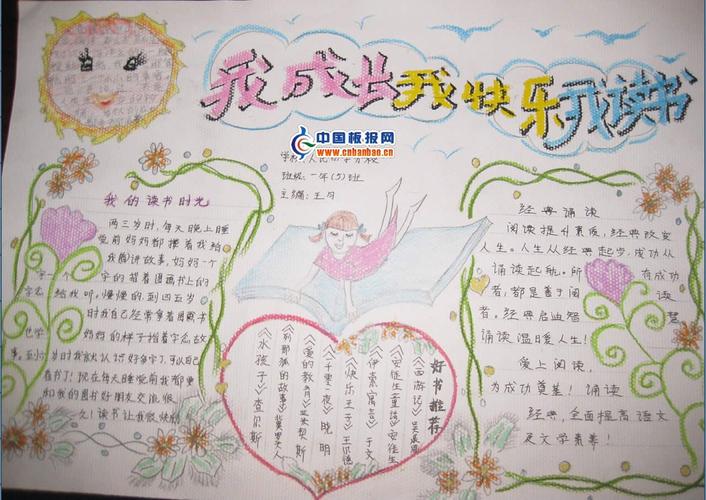 我成长我快乐我读书
中国板报网
www.cnbanbao.cn
班级：一年（5）班
主编：王月
我的读书时光
两三岁时，每天晚上睡
觉前妈妈都搂着我给
我讲故事，妈妈一个
字一个字的指着图画书上的
字念给我听。慢慢的到四五岁
时我自己经常拿着图画书
也学妈妈的样子指着字念故
为时我就认识好多字了，可以自己
看书了！现在每天睡觉前我都要
和我的图书好朋友交流很
久！读书让我很快乐！
好书推荐
《西游记》吴承恩
《安徒生童话》安徒生
《伊索寓言》于文
《快乐王子》王尔德
《一千零一夜》晓明
《爱的教育》亚米契斯
《列那狐的故事》
《水孩子》查尔斯
经典诵读
阅读提升素质，经典改变
人生。人生从经典起步，成功从
诵读起航。所有成功
者，都是善于阅读
者。经典启迪智慧
诵读温暖人生！
爱上阅读，
为成功奠基！诵读
经典，全面提高语文
及文学素养！